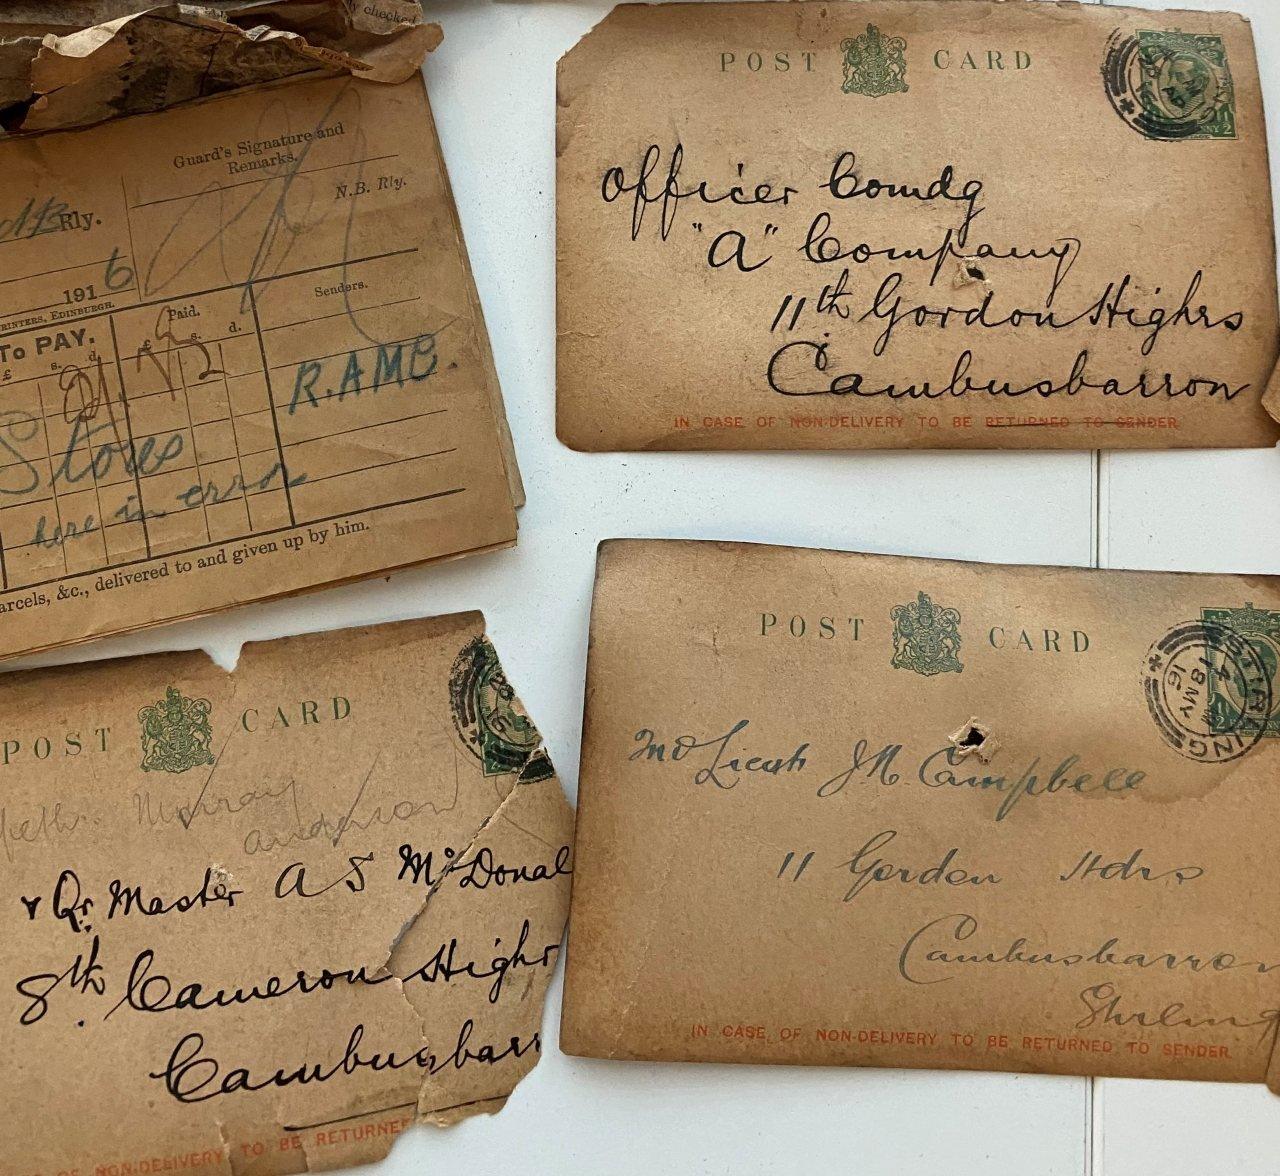 checked
Guard's Signature and
Remarks.
N.B. Rly.
Rly.
1916
PRINTERS, EDINBURGH.
TO PAY.
£ s. d.
Paid.
£ s. d.
2
Senders.
R.AMC.
Stores
here in error
arcels, &c., delivered to and given up by him.
POST CARD
Officer Comdg
"A" Company
11th Gordon Highrs
Cambusbarron
IN CASE OF NON-DELIVERY TO BE RETURNED TO SENDER
POST CARD
Murray
Anderson
Qr Master A S McDonal
8th Cameron Highr
Cambusbarr
OF NON-DELIVERY TO BE RETURNE
POST CARD
STIRLING
18 MY
16
Lieut J M Campbell
11 Gordon Hdrs
Cambusbarron
Stirling
IN CASE OF NON-DELIVERY TO BE RETURNED TO SENDER